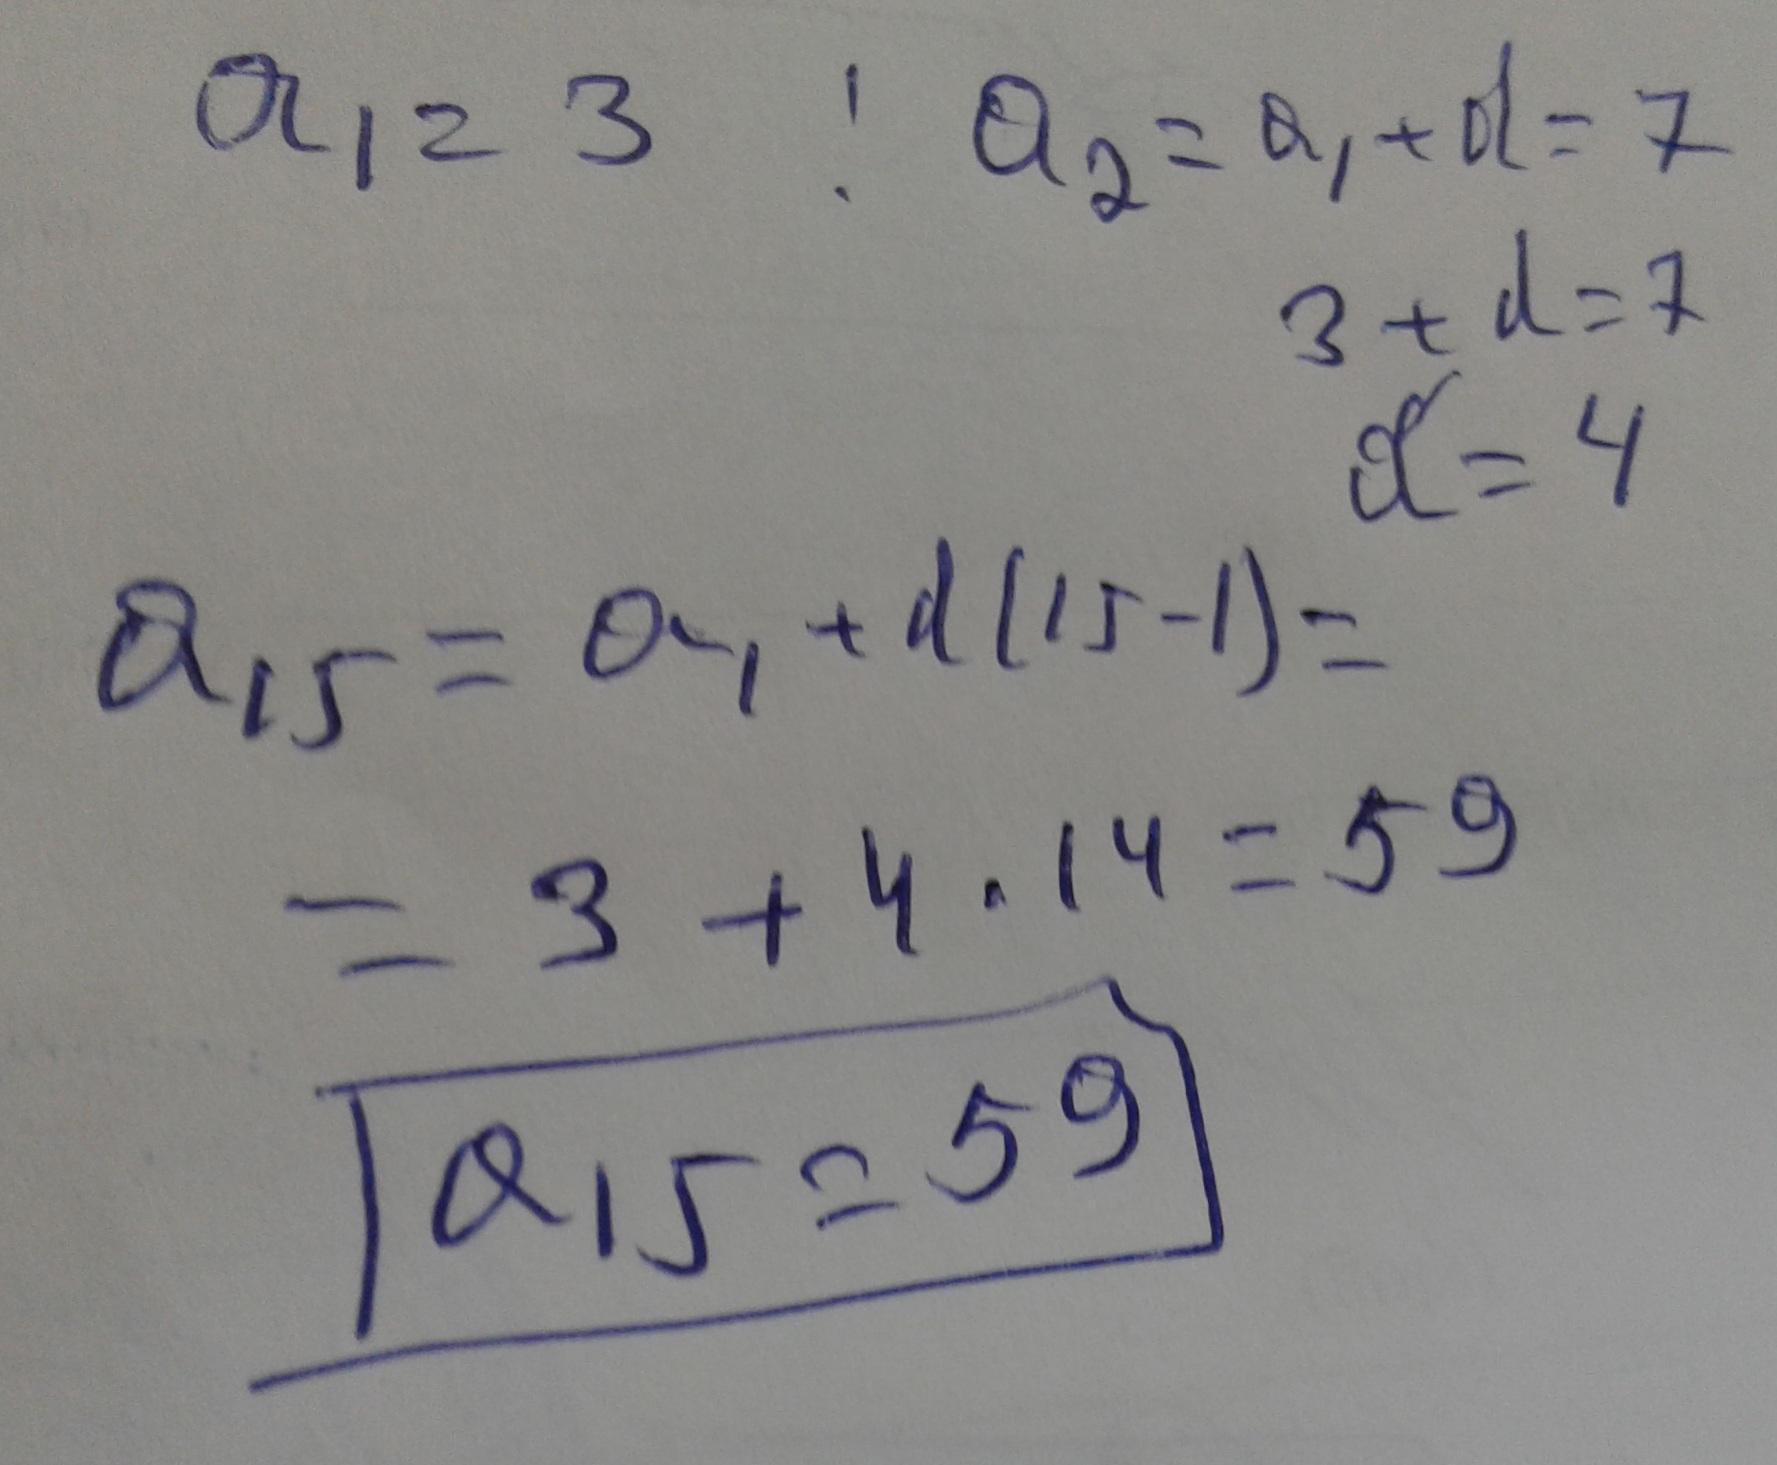 a₁ = 3 ; a₂ = a₁ + d = 7
3 + d = 7
d = 4
a₁₅ = a₁ + d(15-1) =
= 3 + 4 · 14 = 59
a₁₅ = 59